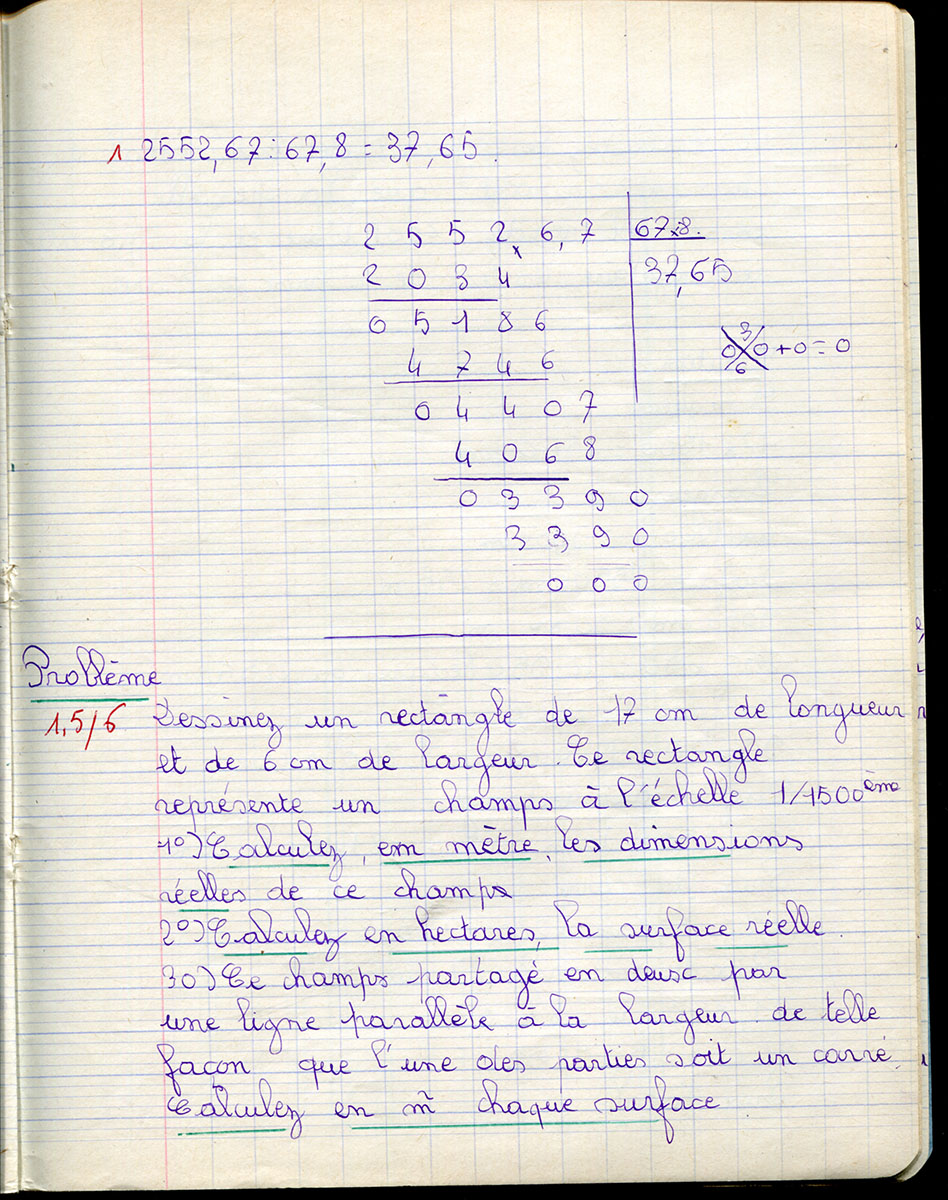 1 2552,67 : 67,8 = 37,65.
2 5 5 2 6,7 67,8.
2 0 3 4 37,65
0 5 1 8 6 3
4 7 4 6 0 0 + 0 = 0
6
0 4 4 0 7
4 0 6 8
0 3 3 9 0
3 3 9 0
0 0 0
Problème
1,5/6 Dessinez un rectangle de 17 cm de longueur
et de 6 cm de largeur. Ce rectangle
représente un champs à l'échelle 1/1500ème
1º) Calculez, em mètre, les dimensions
réelles de ce champs
2º) Calculez en hectares, la surface réelle.
3º) Ce champs partagé en deux par
une ligne parallèle à la largeur de telle
façon que l'une des parties soit un carré.
Calculez en m² chaque surface